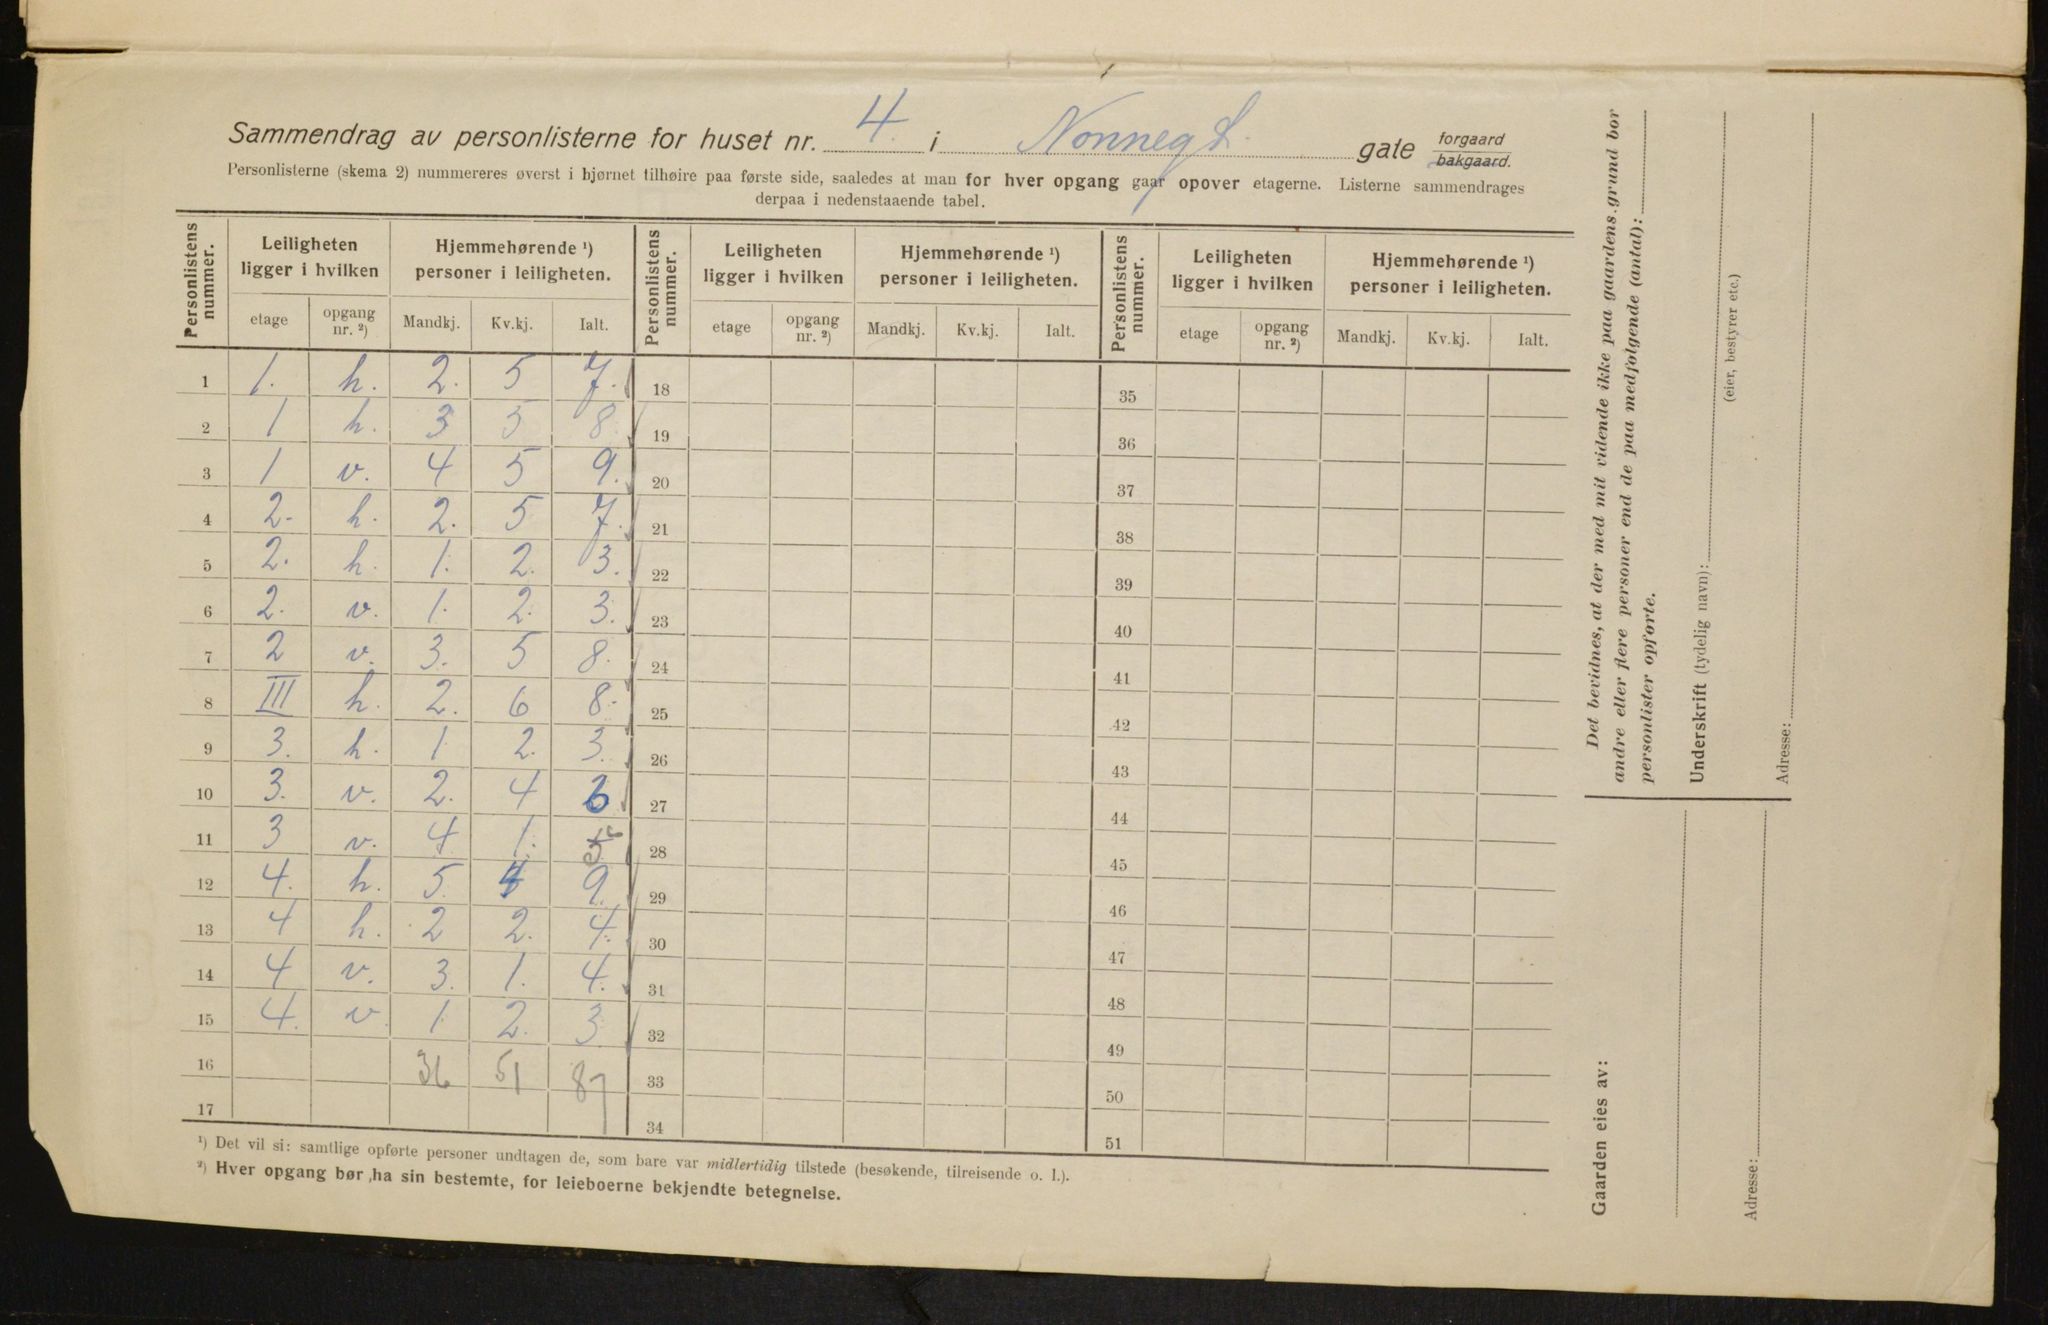 Sammendrag av personlisterne for huset nr. 4. i Nonnegt. gate forgaard bakgaard.
Personlisterne (skema 2) nummereres øverst i hjørnet tilhøire paa første side, saaledes at man for hver opgang gaar opover etagerne. Listerne sammendrages
derpaa i nedenstaaende tabel.
Personlistens nummer. Leiligheten ligger i hvilken Hjemmehørende ¹) personer i leiligheten. Personlistens nummer. Leiligheten ligger i hvilken Hjemmehørende ¹) personer i leiligheten. Personlistens nummer. Leiligheten ligger i hvilken Hjemmehørende ¹) personer i leiligheten.
etage opgang nr. ²) Mandkj. Kv.kj. Ialt. etage opgang nr. ²) Mandkj. Kv.kj. Ialt. etage opgang nr. ²) Mandkj. Kv.kj. Ialt.
1 1. h. 2. 5 7. 18 35
2 1 h. 3 5 8. 19 36
3 1 v. 4 5 9. 20 37
4 2. h. 2. 5 7. 21 38
5 2. h. 1. 2. 3. 22 39
6 2. v. 1. 2. 3. 23 40
7 2 v. 3. 5 8. 24 41
8 III h. 2. 6 8. 25 42
9 3. h. 1 2. 3. 26 43
10 3. v. 2. 4 6 27 44
11 3 v. 4 1. 5 28 45
12 4. h. 5. 4 9. 29 46
13 4 h. 2 2. 4. 30 47
14 4 v. 3. 1. 4. 31 48
15 4. v. 1 2. 3. 32 49
16 36 51 87 33 50
17 34 51
¹) Det vil si: samtlige opførte personer undtagen de, som bare var midlertidig tilstede (besøkende, tilreisende o. l.).
²) Hver opgang bør ha sin bestemte, for leieboerne bekjendte betegnelse.
Det bevidnes, at der med mit vidende ikke paa gaardens grund bor
andre eller flere personer end de paa medfølgende (antal):
personlister opførte.
Underskrift (tydelig navn):
(eier, bestyrer etc.)
Adresse:
Gaarden eies av:
Adresse: